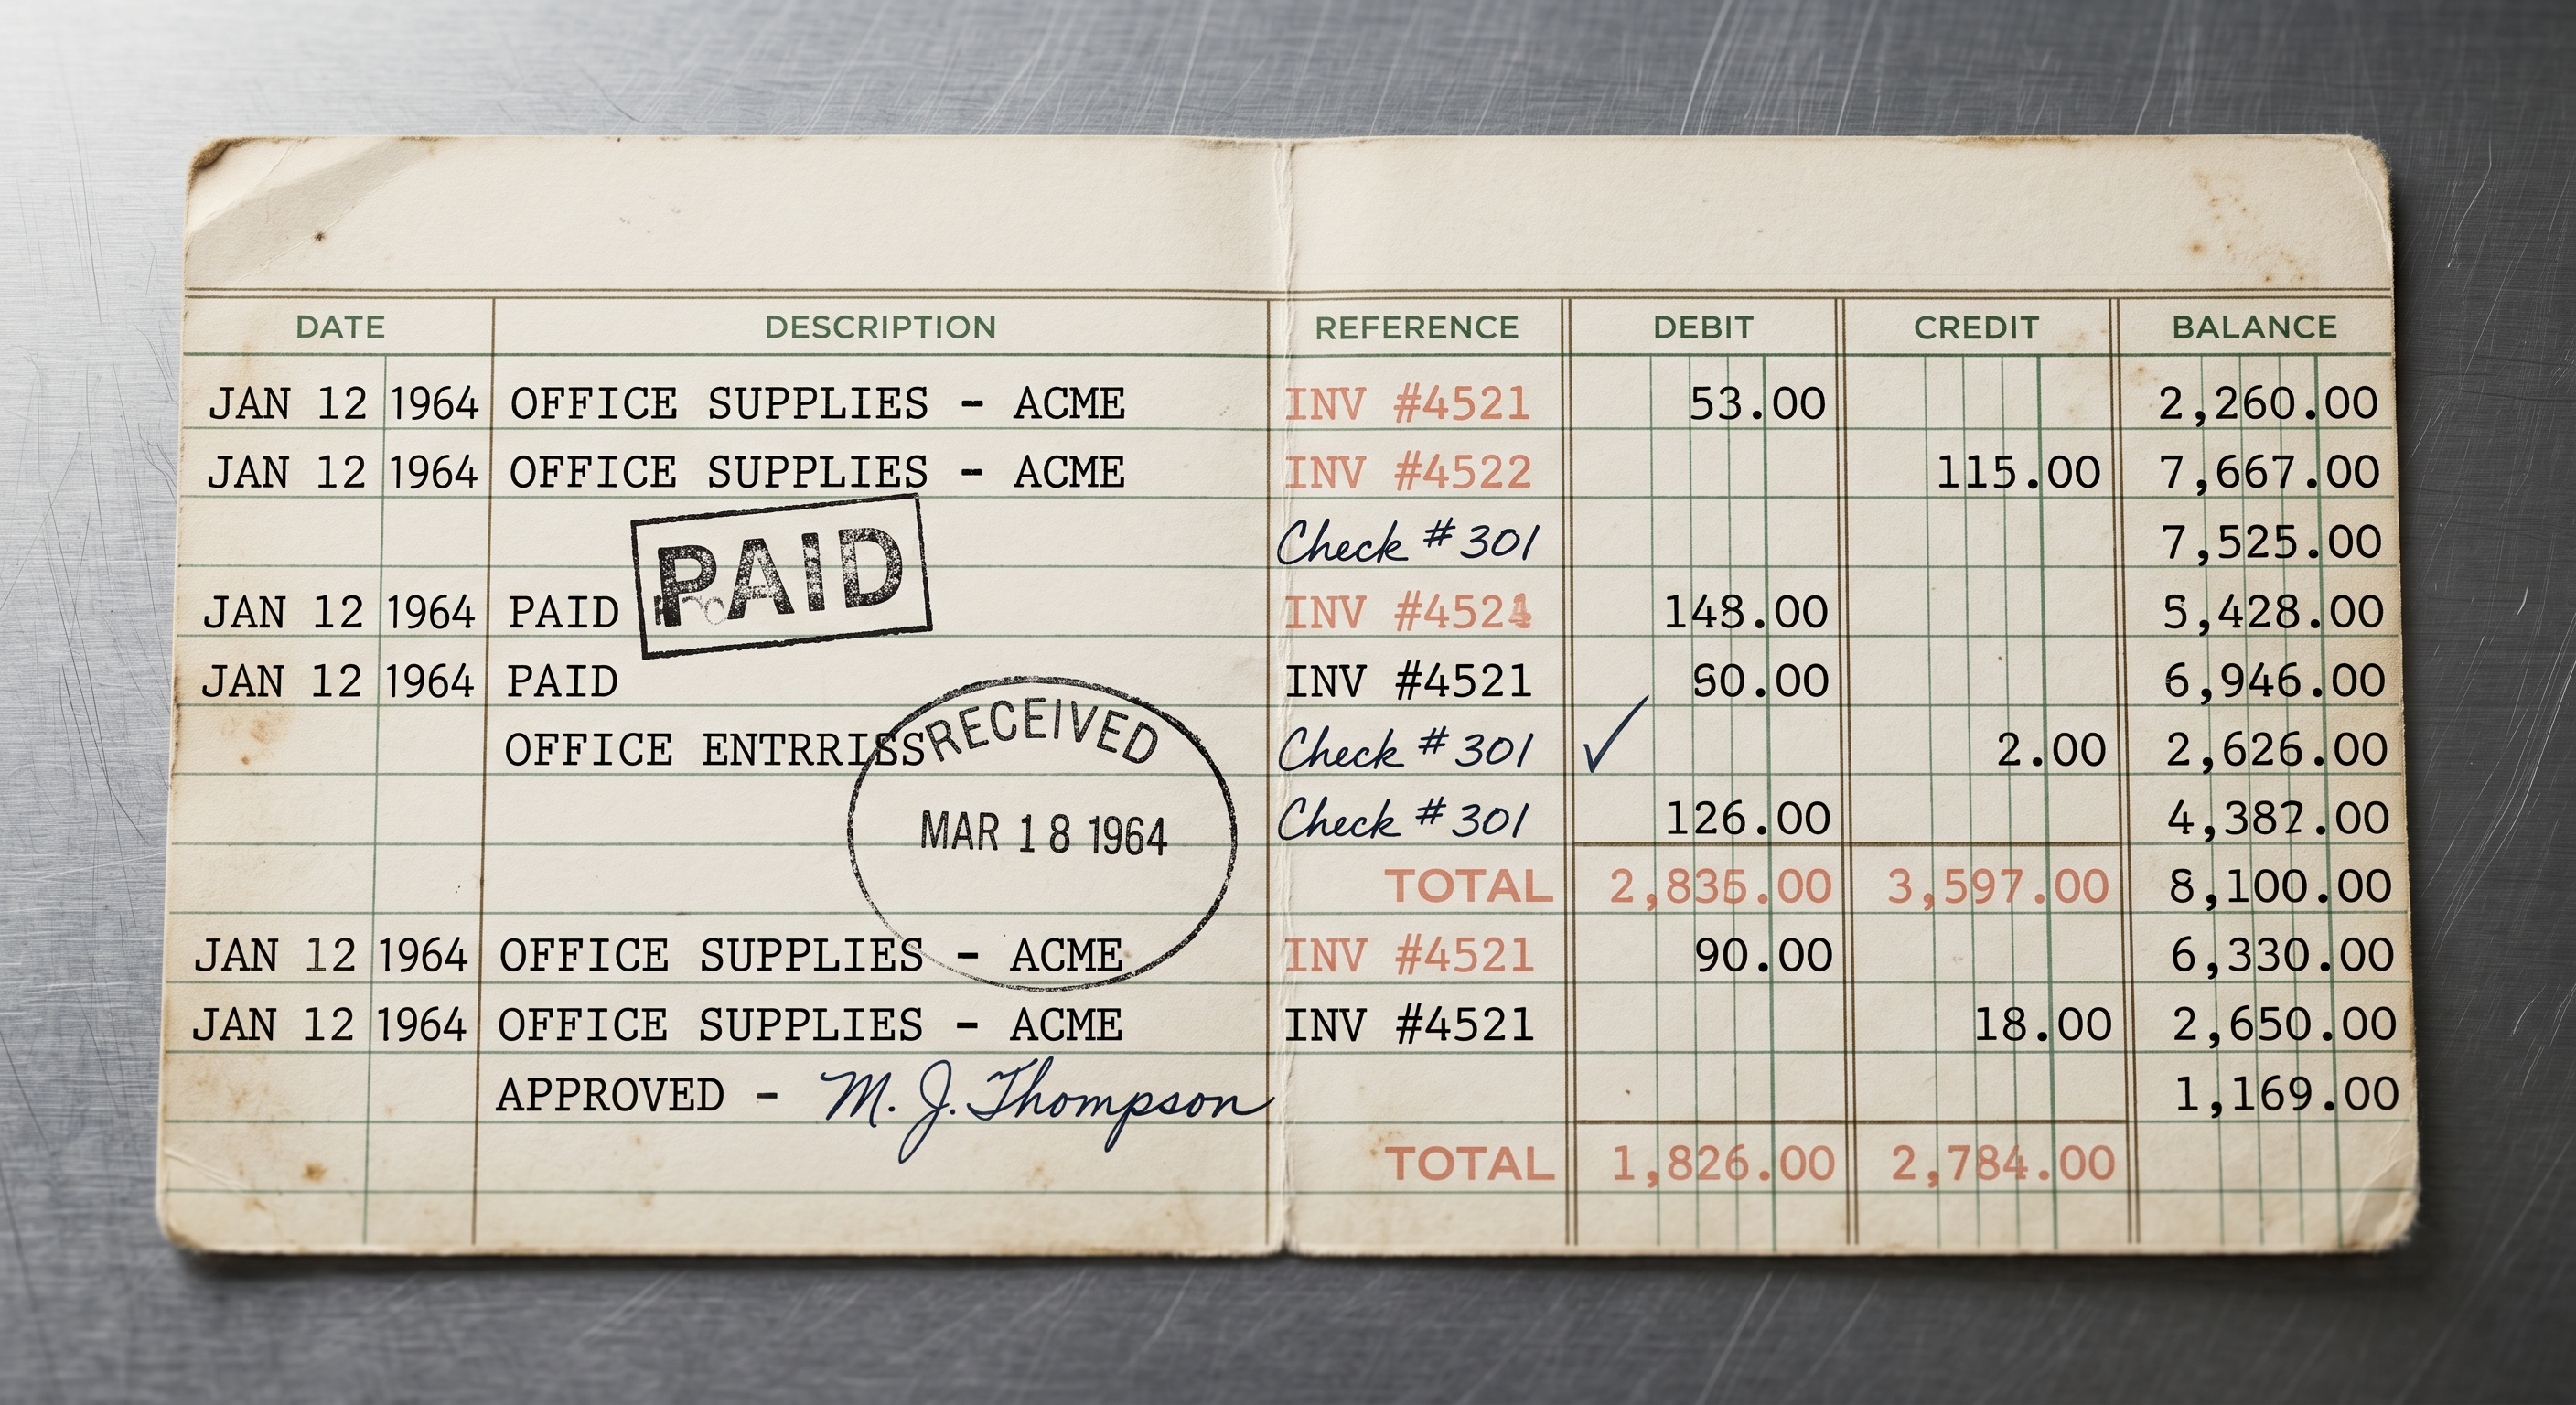 DATE DESCRIPTION REFERENCE DEBIT CREDIT BALANCE
JAN 12 1964 OFFICE SUPPLIES - ACME INV #4521 53.00 2,260.00
JAN 12 1964 OFFICE SUPPLIES - ACME INV #4522 115.00 7,667.00
PAID
Check #301 7,525.00
JAN 12 1964 PAID INV #4524 148.00 5,428.00
JAN 12 1964 PAID INV #4521 60.00 6,946.00
OFFICE ENTRRISS Check #301 ✓ 2.00 2,626.00
RECEIVED
MAR 18 1964
Check #301 126.00 4,382.00
TOTAL 2,835.00 3,597.00 8,100.00
JAN 12 1964 OFFICE SUPPLIES - ACME INV #4521 90.00 6,330.00
JAN 12 1964 OFFICE SUPPLIES - ACME INV #4521 18.00 2,650.00
APPROVED - M. J. Thompson 1,169.00
TOTAL 1,826.00 2,784.00